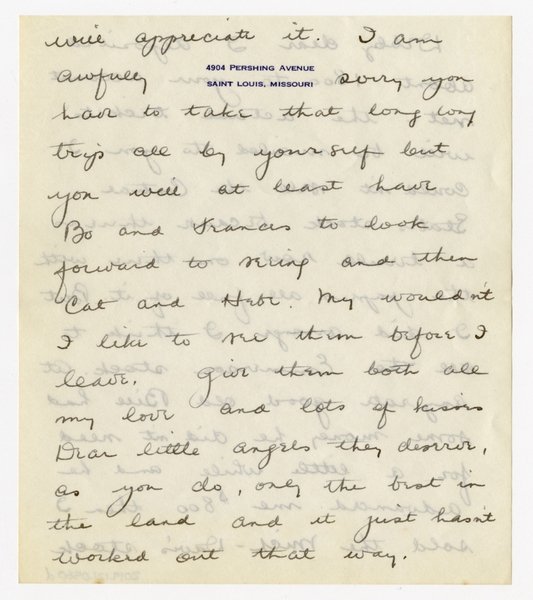 will appreciate it. I am
4904 PERSHING AVENUE
SAINT LOUIS, MISSOURI
awfully sorry you
have to take that long long
trip all by yourself but
you will at least have
Bo and Francis to look
forward to seeing and then
Cat and Hebe. My wouldn't
I like to see them before I
leave. Give them both all
my love and lots of kisses
Dear little angels they deserve,
as you do, only the best in
the land and it just hasn't
worked out that way.